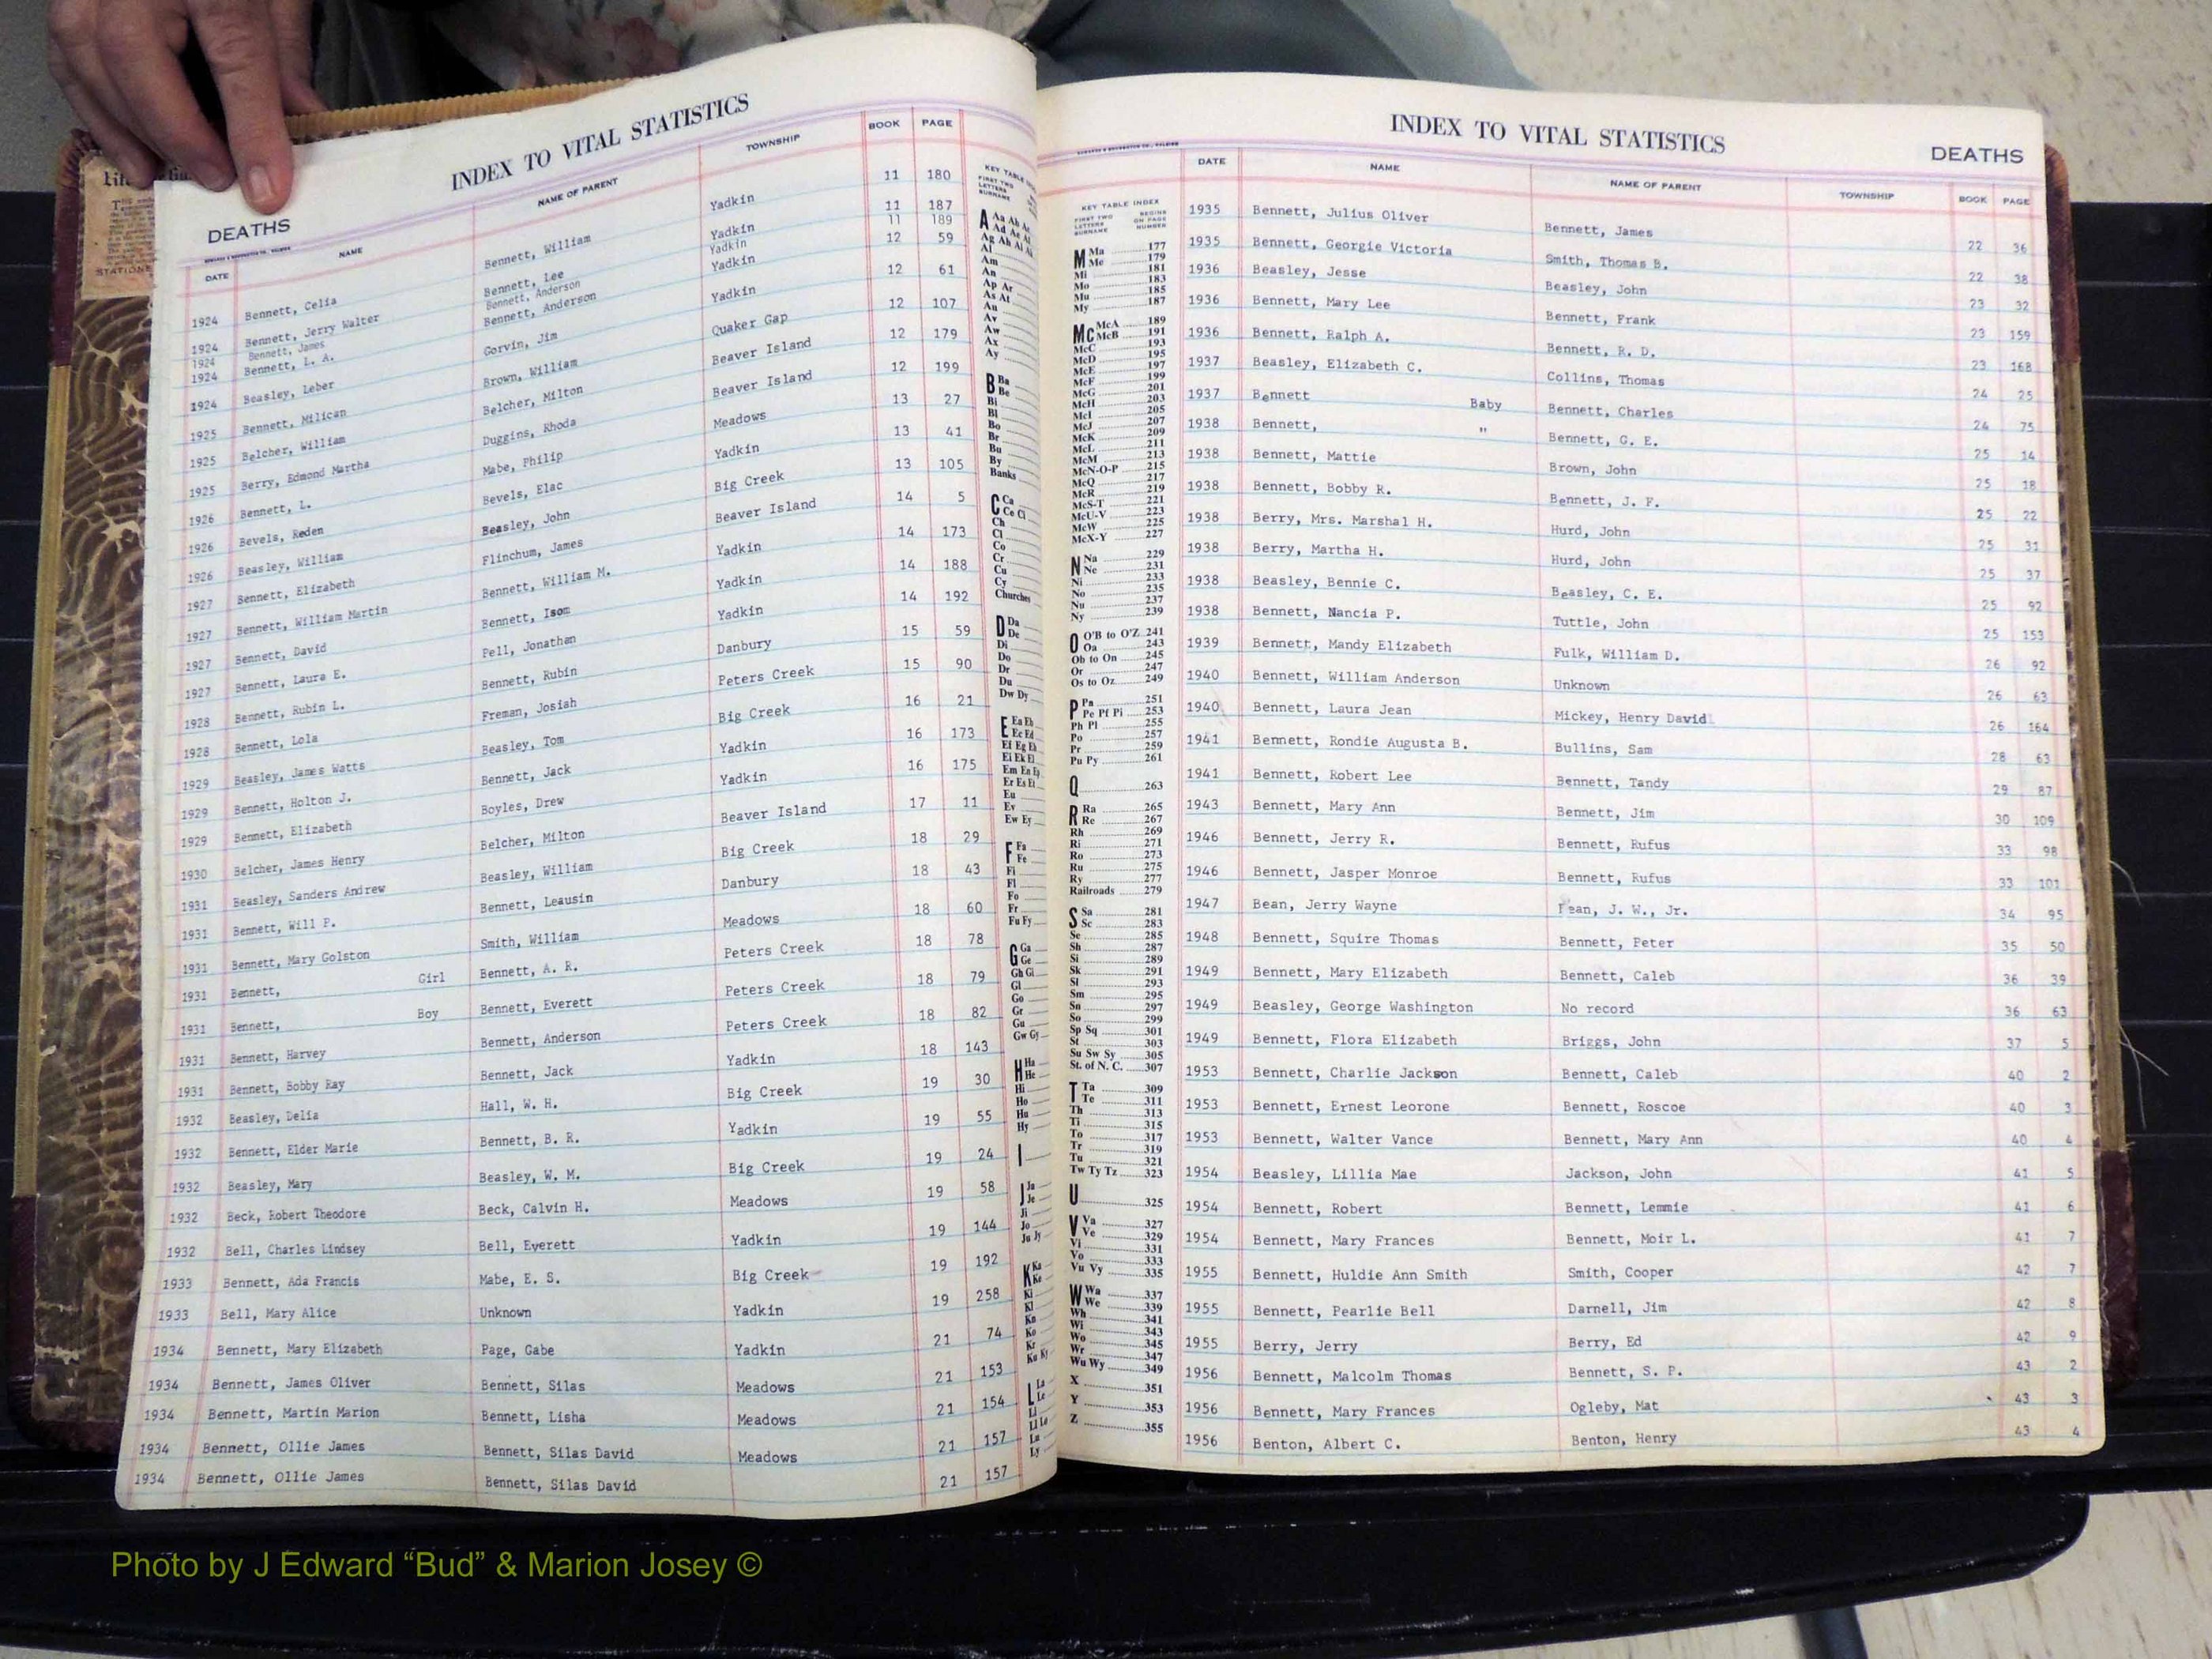 INDEX TO VITAL STATISTICS
DEATHS
DATE NAME NAME OF PARENT TOWNSHIP BOOK PAGE
1924 Bennett, Celia Bennett, William Yadkin 11 180
1924 Bennett, Jerry Walter Bennett, Lee Yadkin 11 187
1924 Bennett, James Bennett, Anderson Yadkin 11 189
1924 Bennett, L. A. Bennett, Anderson Yadkin 12 59
1924 Beasley, Leber Gorvin, Jim Yadkin 12 61
1925 Bennett, Milican Brown, William Quaker Gap 12 107
1925 Belcher, William Belcher, Milton Beaver Island 12 179
1925 Berry, Edmond Martha Duggins, Rhoda Beaver Island 12 199
1926 Bennett, L. Mabe, Philip Meadows 13 27
1926 Bevels, Reden Bevels, Elac Yadkin 13 41
1926 Beasley, William Beasley, John Big Creek 13 105
1927 Bennett, Elizabeth Flinchum, James Beaver Island 14 5
1927 Bennett, William Martin Bennett, William M. Yadkin 14 173
1927 Bennett, David Bennett, Isom Yadkin 14 188
1927 Bennett, Laura E. Pell, Jonathan Yadkin 14 192
1928 Bennett, Rubin L. Bennett, Rubin Danbury 15 59
1928 Bennett, Lola Freman, Josiah Peters Creek 15 90
1929 Beasley, James Watts Beasley, Tom Big Creek 16 21
1929 Bennett, Holton J. Bennett, Jack Yadkin 16 173
1929 Bennett, Elizabeth Boyles, Drew Yadkin 16 175
1930 Belcher, James Henry Belcher, Milton Beaver Island 17 11
1931 Beasley, Sanders Andrew Beasley, William Big Creek 18 29
1931 Bennett, Will P. Bennett, Leausin Danbury 18 43
1931 Bennett, Mary Golston Smith, William Meadows 18 60
1931 Bennett, Girl Bennett, A. R. Peters Creek 18 78
1931 Bennett, Boy Bennett, Everett Peters Creek 18 79
1931 Bennett, Harvey Bennett, Anderson Peters Creek 18 82
1931 Bennett, Bobby Ray Bennett, Jack Yadkin 18 143
1932 Beasley, Delia Hall, W. H. Big Creek 19 30
1932 Bennett, Elder Marie Bennett, B. R. Yadkin 19 55
1932 Beasley, Mary Beasley, W. M. Big Creek 19 24
1932 Beck, Robert Theodore Beck, Calvin H. Meadows 19 58
1932 Bell, Charles Lindsey Bell, Everett Yadkin 19 144
1933 Bennett, Ada Francis Mabe, E. S. Big Creek 19 192
1933 Bell, Mary Alice Unknown Yadkin 19 258
1934 Bennett, Mary Elizabeth Page, Gabe Yadkin 21 74
1934 Bennett, James Oliver Bennett, Silas Meadows 21 153
1934 Bennett, Martin Marion Bennett, Lisha Meadows 21 154
1934 Bennett, Ollie James Bennett, Silas David Meadows 21 157
1934 Bennett, Ollie James Bennett, Silas David 21 157
KEY TABLE
FIRST TWO
LETTERS
SURNAME
A Aa Ab Ac
Ad Ae Af
Ag Ah Ai
Al
Am
An
Ap Ar
As At
Au
Av
Aw
Ax
Ay
B Ba
Be
Bi
Bl
Bo
Br
Bu
By
Banks
C Ca
Ce Ci
Ch
Cl
Co
Cr
Cu
Cy
Churches
D Da
De
Di
Do
Dr
Du
Dw Dy
E Ea Eb
Ec Ed
Ef Eg Eh
Ei Ek El
Em En Ep
Er Es Et
Eu
Ev
Ew Ey
F Fa
Fe
Fi
Fl
Fo
Fr
Fu Fy
G Ga
Ge
Gh Gi
Gl
Go
Gr
Gu
Gw Gy
H Ha
He
Hi
Ho
Hu
Hy
I
J Ja
Je
Ji
Jo
Ju Jy
K Ka
Ke
Ki
Kl
Kn
Ko
Kr
Ku Ky
L La
Le
Li
Ll Lo
Lu
Ly
INDEX TO VITAL STATISTICS
DEATHS
KEY TABLE INDEX
FIRST TWO LETTERS SURNAME BEGINS ON PAGE NUMBER
M Ma 177
Me 179
Mi 181
Mo 183
Mu 185
My 187
Mc McA 189
McB 191
McC 193
McD 195
McE 197
McF 199
McG 201
McH 203
McI 205
McJ 207
McK 209
McL 211
McM 213
McN-O-P 215
McQ 217
McR 219
McS-T 221
McU-V 223
McW 225
McX-Y 227
N Na 229
Ne 231
Ni 233
No 235
Nu 237
Ny 239
O O'B to O'Z 241
Oa 243
Ob to On 245
Or 247
Os to Oz 249
P Pa 251
Pe Pf Pi 253
Ph Pl 255
Po 257
Pr 259
Pu Py 261
Q 263
R Ra 265
Re 267
Rh 269
Ri 271
Ro 273
Ru 275
Ry 277
Railroads 279
S Sa 281
Sc 283
Se 285
Sh 287
Si 289
Sk 291
Sl 293
Sm 295
Sn 297
So 299
Sp Sq 301
St 303
Su Sw Sy 305
St. of N. C. 307
T Ta 309
Te 311
Th 313
Ti 315
To 317
Tr 319
Tu 321
Tw Ty Tz 323
U 325
V Va 327
Ve 329
Vi 331
Vo 333
Vu Vy 335
W Wa 337
We 339
Wh 341
Wi 343
Wo 345
Wr 347
Wu Wy 349
X 351
Y 353
Z 355
DATE NAME NAME OF PARENT TOWNSHIP BOOK PAGE
1935 Bennett, Julius Oliver Bennett, James 22 36
1935 Bennett, Georgie Victoria Smith, Thomas B. 22 38
1936 Beasley, Jesse Beasley, John 23 32
1936 Bennett, Mary Lee Bennett, Frank 23 159
1936 Bennett, Ralph A. Bennett, R. D. 23 168
1937 Beasley, Elizabeth C. Collins, Thomas 24 25
1937 Bennett Baby Bennett, Charles 24 75
1938 Bennett, " Bennett, G. E. 25 14
1938 Bennett, Mattie Brown, John 25 18
1938 Bennett, Bobby R. Bennett, J. F. 25 22
1938 Berry, Mrs. Marshal H. Hurd, John 25 31
1938 Berry, Martha H. Hurd, John 25 37
1938 Beasley, Bennie C. Beasley, C. E. 25 92
1938 Bennett, Nancia P. Tuttle, John 25 153
1939 Bennett, Mandy Elizabeth Fulk, William D. 26 92
1940 Bennett, William Anderson Unknown 26 63
1940 Bennett, Laura Jean Mickey, Henry David 26 164
1941 Bennett, Rondie Augusta B. Bullins, Sam 28 63
1941 Bennett, Robert Lee Bennett, Tandy 29 87
1943 Bennett, Mary Ann Bennett, Jim 30 109
1946 Bennett, Jerry R. Bennett, Rufus 33 98
1946 Bennett, Jasper Monroe Bennett, Rufus 33 101
1947 Bean, Jerry Wayne Bean, J. W., Jr. 34 95
1948 Bennett, Squire Thomas Bennett, Peter 35 50
1949 Bennett, Mary Elizabeth Bennett, Caleb 36 39
1949 Beasley, George Washington No record 36 63
1949 Bennett, Flora Elizabeth Briggs, John 37 5
1953 Bennett, Charlie Jackson Bennett, Caleb 40 2
1953 Bennett, Ernest Leorone Bennett, Roscoe 40 3
1953 Bennett, Walter Vance Bennett, Mary Ann 40 4
1954 Beasley, Lillia Mae Jackson, John 41 5
1954 Bennett, Robert Bennett, Lemmie 41 6
1954 Bennett, Mary Frances Bennett, Moir L. 41 7
1955 Bennett, Huldie Ann Smith Smith, Cooper 42 7
1955 Bennett, Pearlie Bell Darnell, Jim 42 8
1955 Berry, Jerry Berry, Ed 42 9
1956 Bennett, Malcolm Thomas Bennett, S. P. 43 2
1956 Bennett, Mary Frances Ogleby, Mat 43 3
1956 Benton, Albert C. Benton, Henry 43 4
Photo by J Edward “Bud” & Marion Josey ©